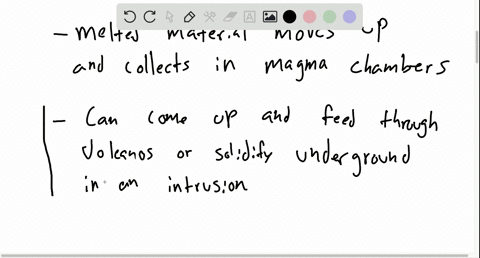 - Melted material moves up
and collects in magma chambers
- Can come up and feed through
Volcanos or solidify underground
in an intrusion